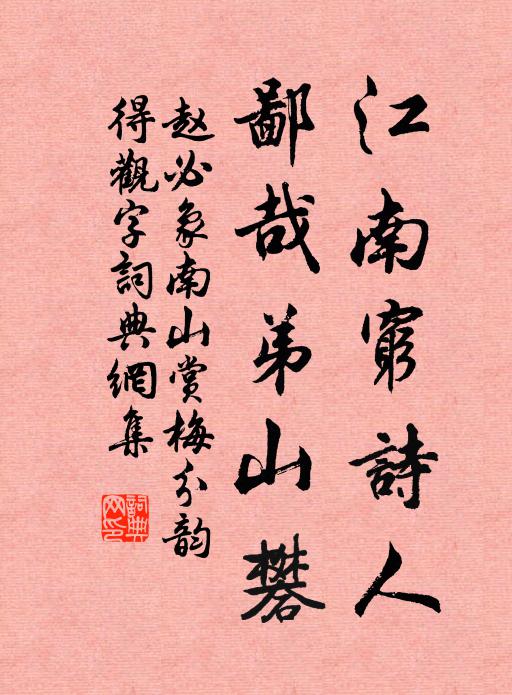 江南窮詩人
鄙哉弟山礬
赵必象南山賞梅分韵
得觀字詞典網集
詞典
网印